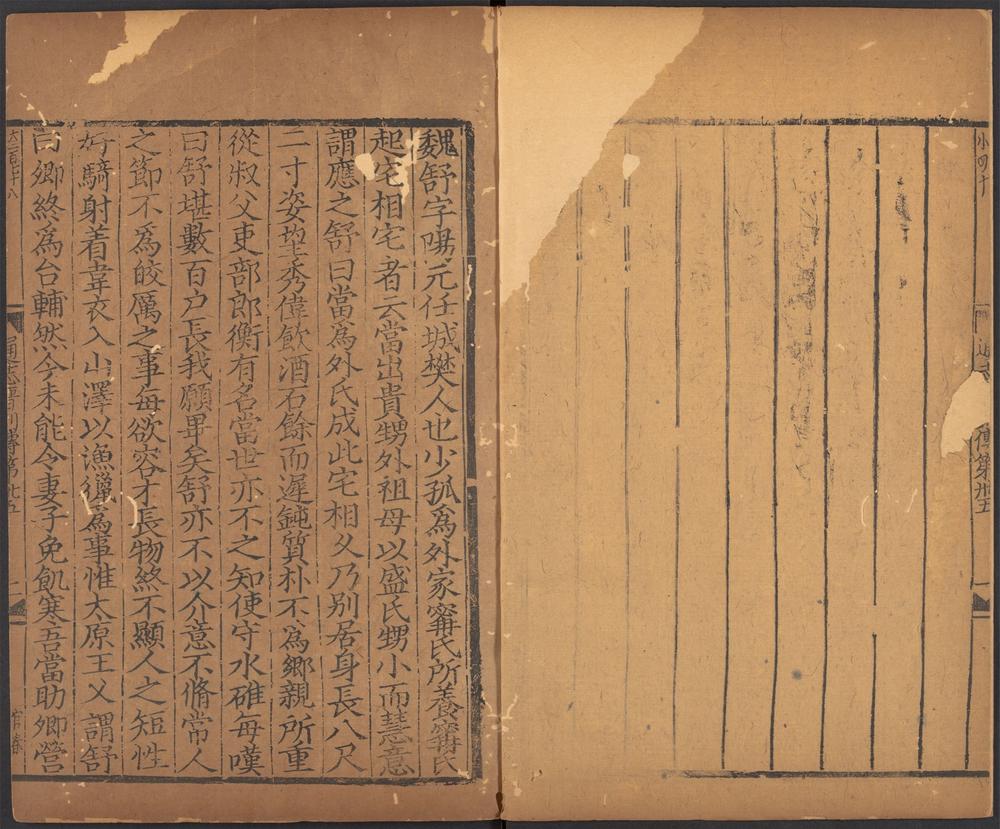 小四十
傳第卅五
一
魏舒字陽元任城樊人也少孤爲外家甯氏所養甯氏
起宅相宅者云當出貴甥外祖母以盛氏甥小而慧意
謂應之舒曰當爲外氏成此宅相乆乃别居身長八尺
二寸姿望秀偉飮酒石餘而遲鈍質朴不爲鄉親所重
從叔父吏部郎衡有名當世亦不之知使守水碓每嘆
曰舒堪數百户長我願畢矣舒亦不以介意不脩常人
之節不爲皎厲之事每欲容才長物終不顯人之短性
好騎射着韋衣入山澤以漁獵爲事惟太原王乂謂舒
曰卿終爲台輔然今未能令妻子免飢寒吾當助卿營
通志晉列傳第卅五
二